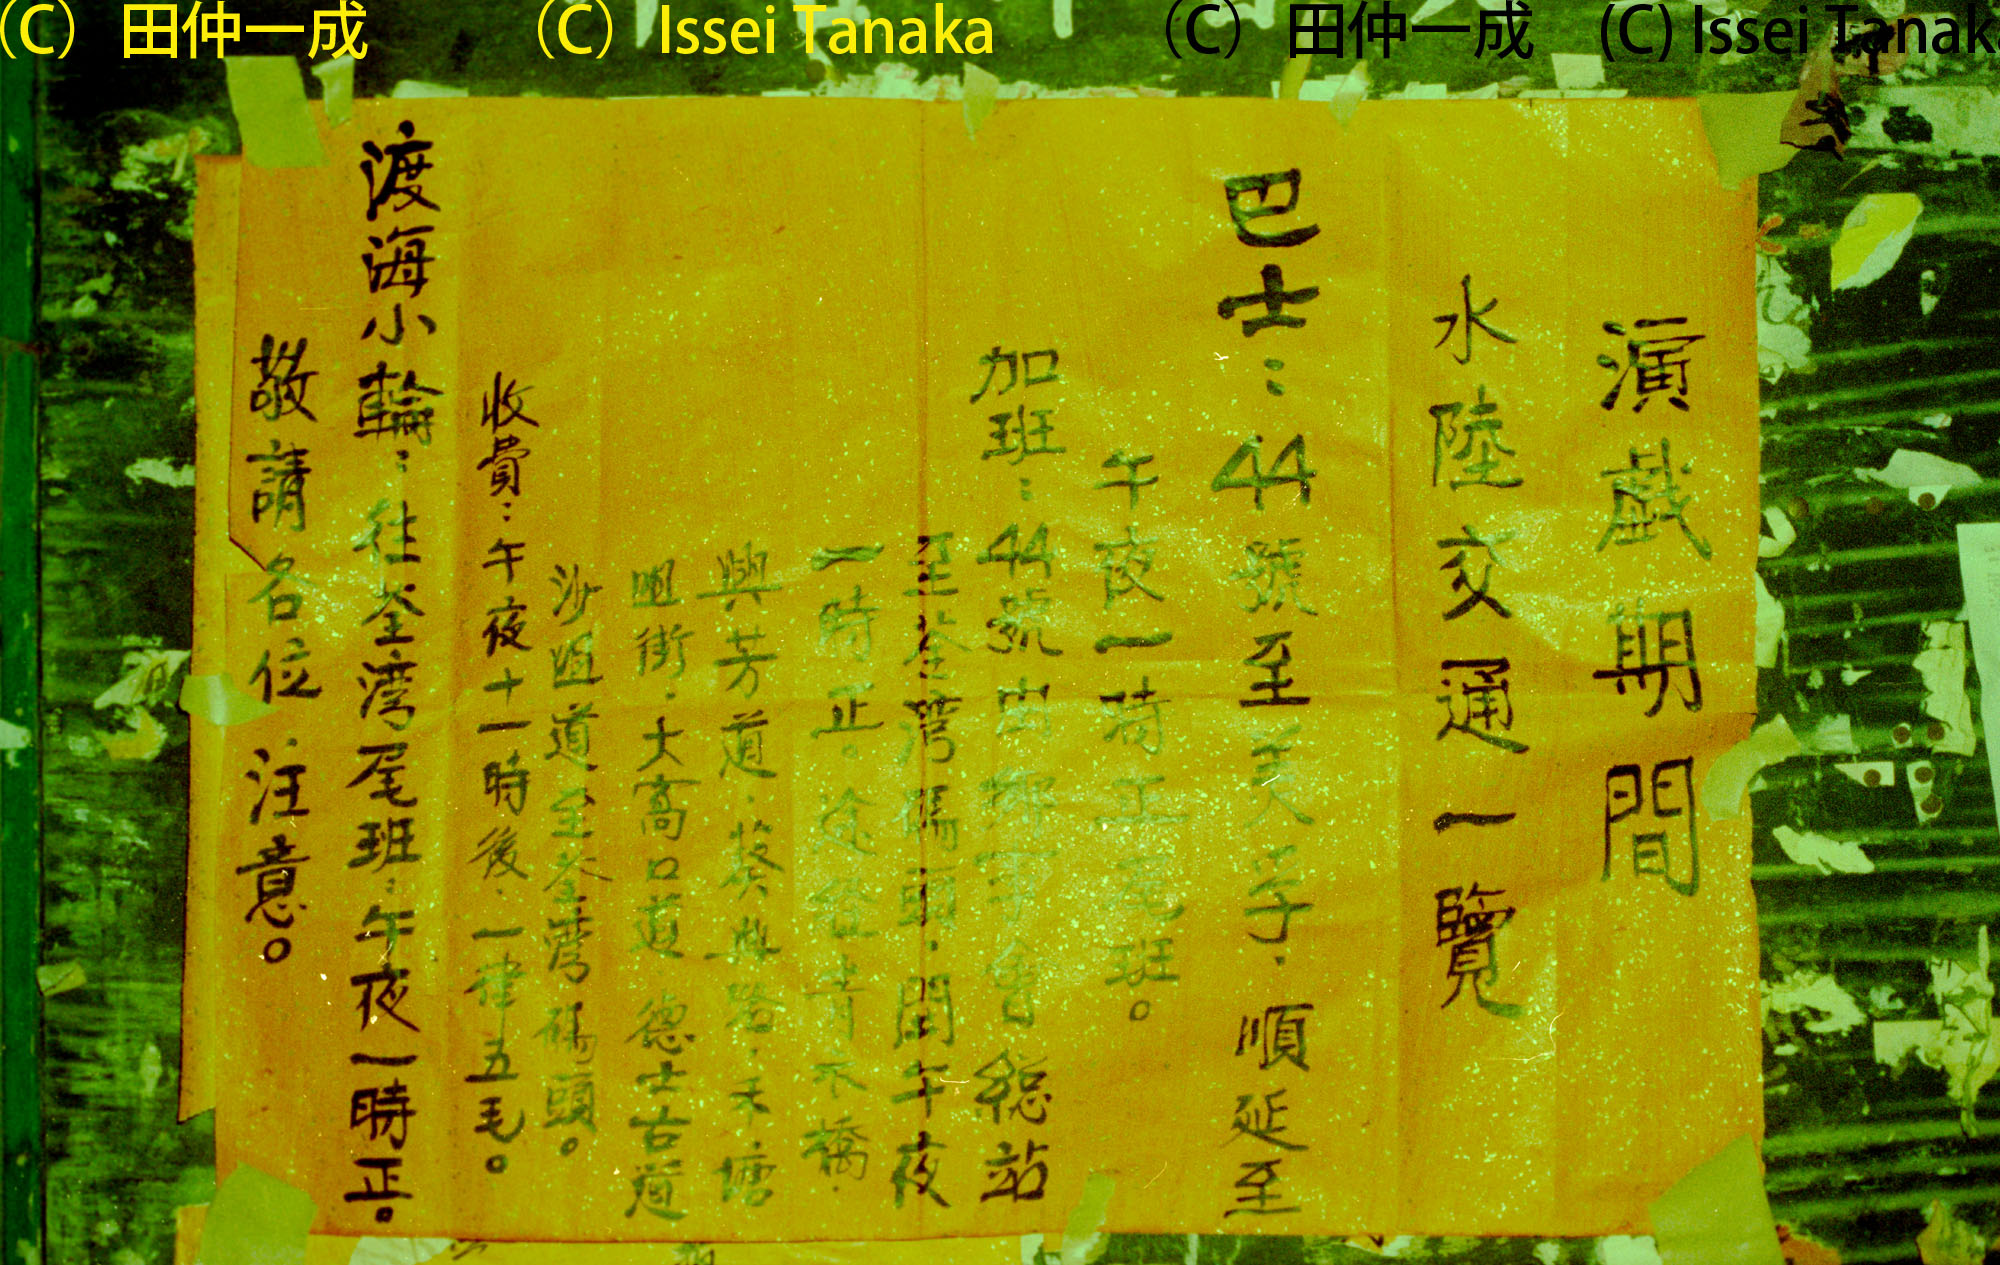 (C) 田仲一成 (C) Issei Tanaka (C) 田仲一成 (C) Issei Tanaka
演戲期間
水陸交通一覽
巴士：44號至美孚．順延至
午夜一時正尾班。
加班：44號由鄉事會總站
至荃灣碼頭．開午夜
一時正。途經青衣橋．
興芳道．葵興路．禾塘
咀街．大窩口道．德士古道
沙咀道至荃灣碼頭。
收費：午夜十一時後．一律五毛。
渡海小輪：往荃灣尾班．午夜一時正。
敬請各位注意。